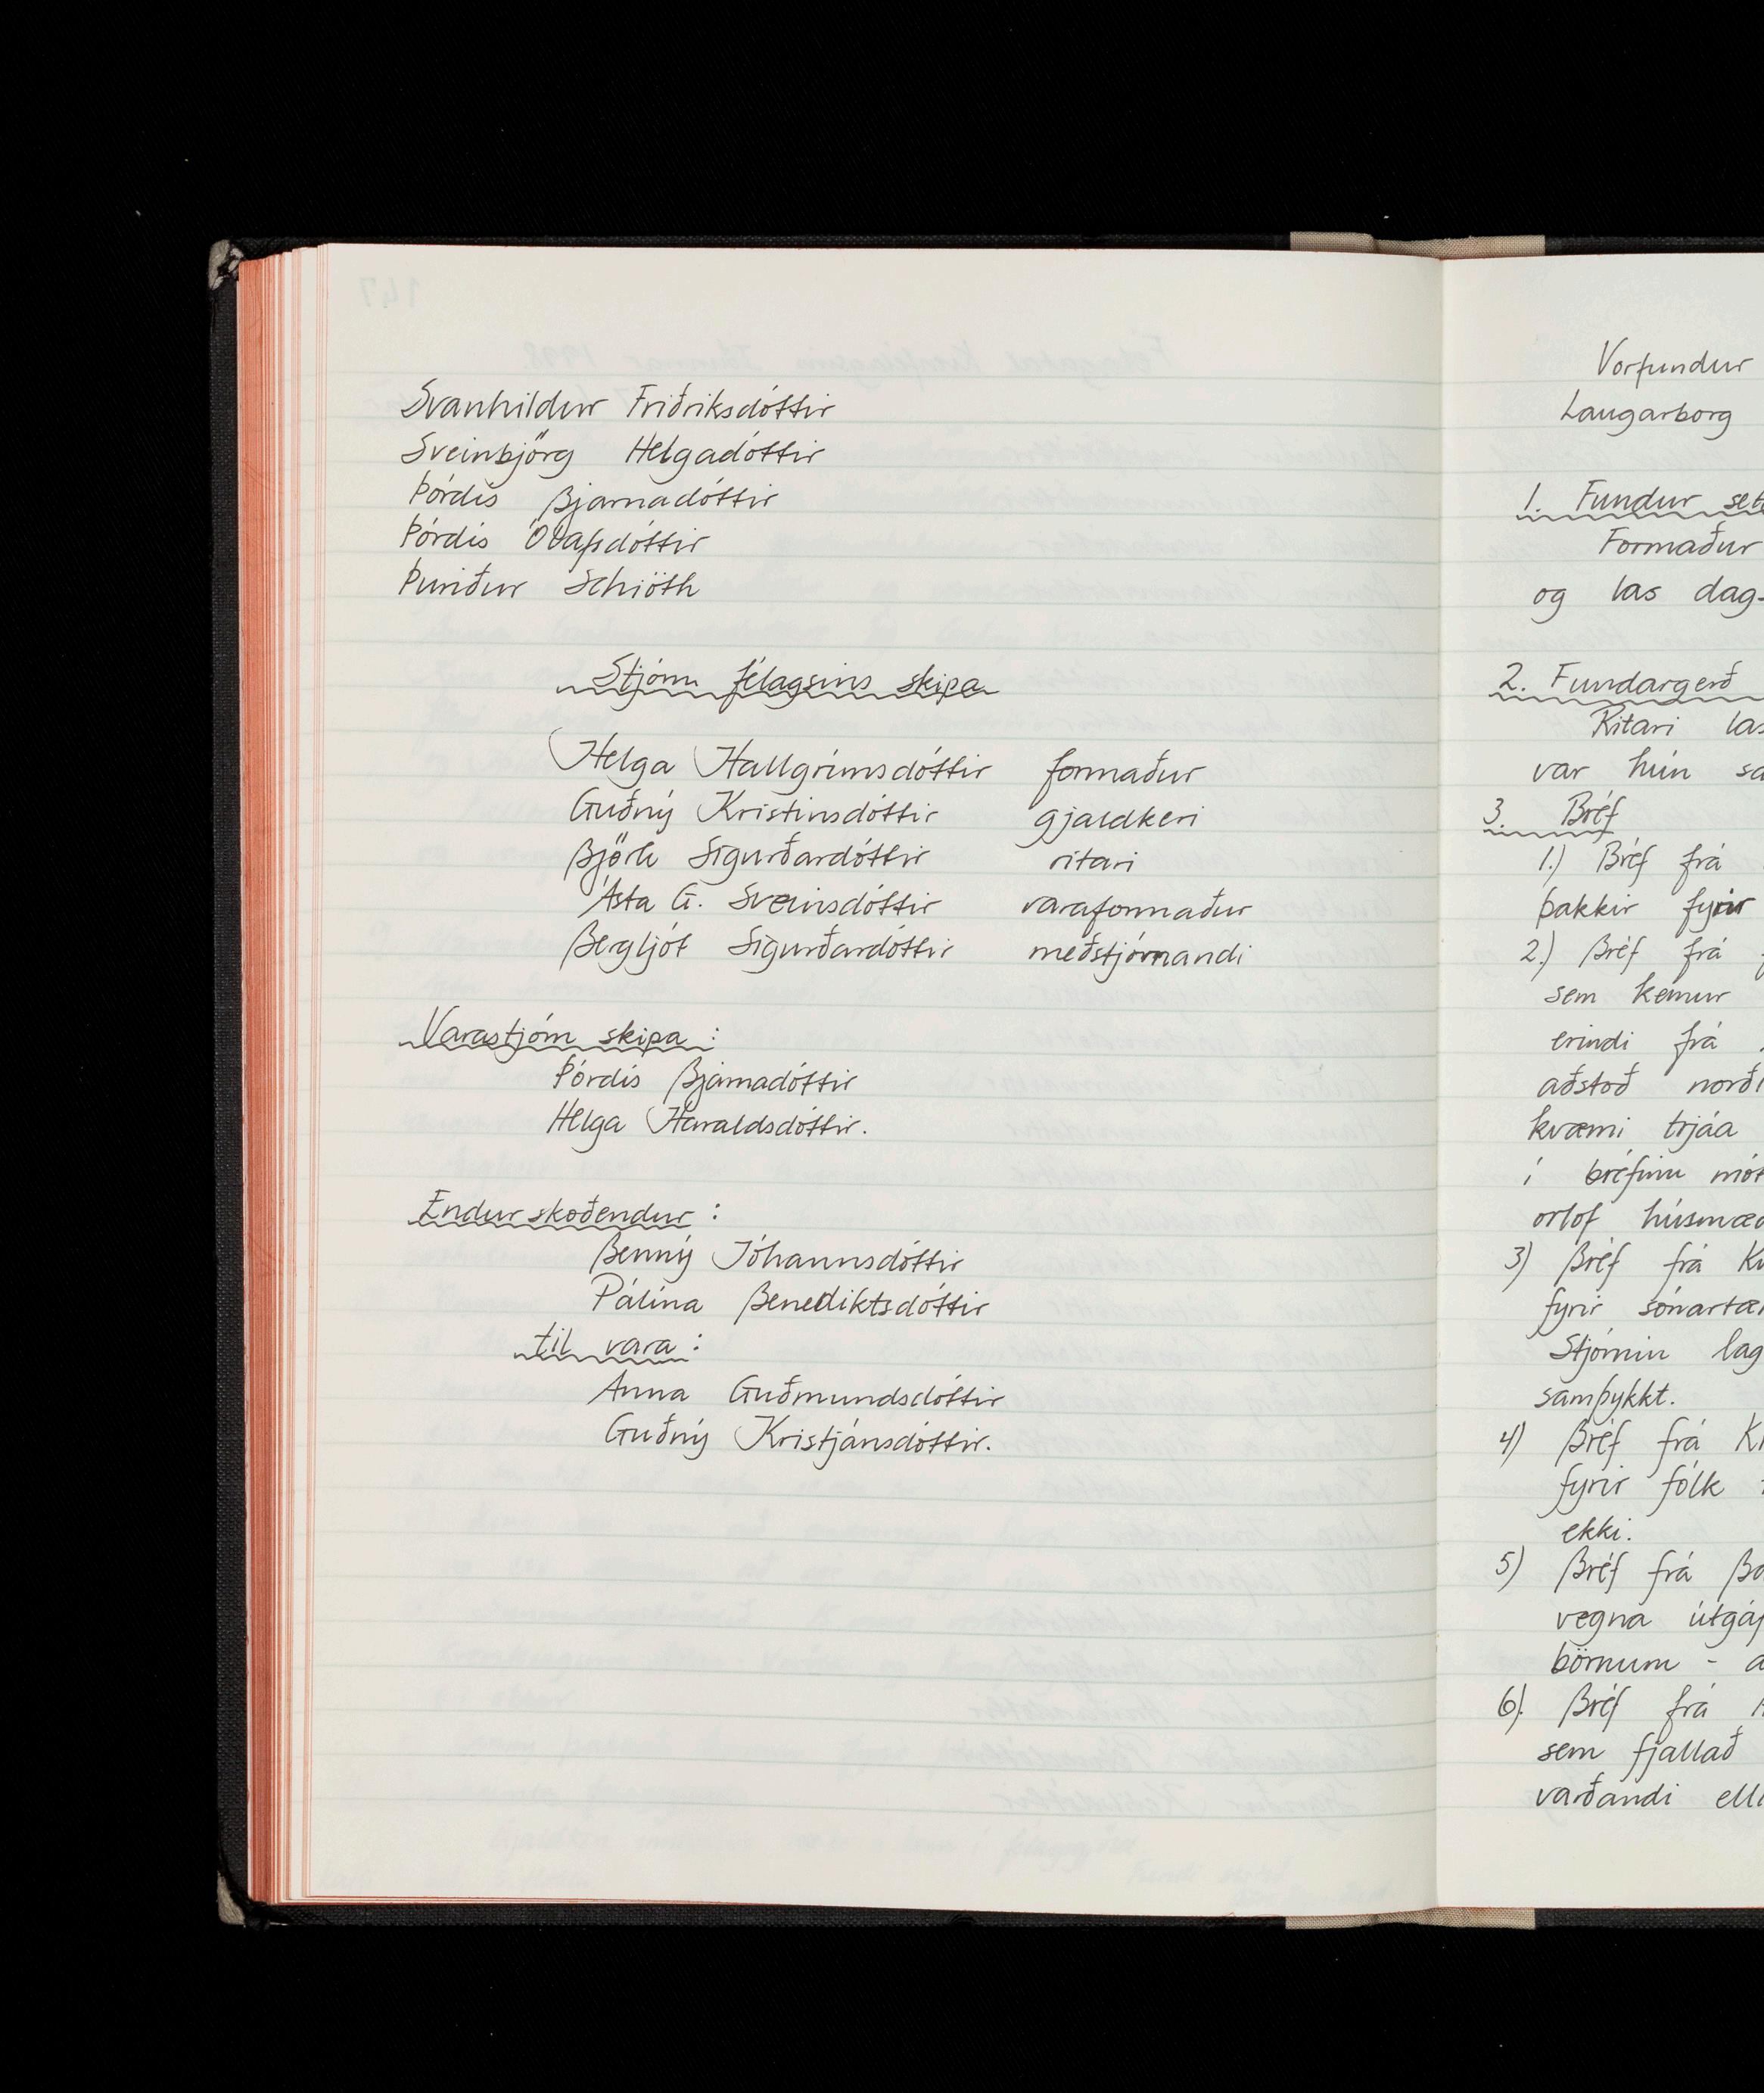 Svanhildur Friðriksdóttir
Sveinbjörg Helgadóttir
Þórdís Bjarnadóttir
Þórdís Ólafsdóttir
Þuríður Schiöth
Stjórn félagsins skipa
Helga Hallgrímsdóttir formaður
Guðný Kristinsdóttir gjaldkeri
Björk Sigurðardóttir ritari
Ásta G. Sveinsdóttir varaformaður
Bergljót Sigurðardóttir meðstjórnandi
Varastjórn skipa :
Þórdís Bjarnadóttir
Helga Haraldsdóttir.
Endurskoðendur :
Benný Jóhannsdóttir
Pálína Benediktsdóttir
til vara :
Anna Guðmundsdóttir
Guðný Kristjánsdóttir.
Vorfundur
Laugarborg
1. Fundur set
Formaður
og las dag-
2. Fundargerð
Ritari las
var hún sa
3. Bréf
1.) Bréf frá
þakkir fyrir
2.) Bréf frá
sem kemur
erindi frá
aðstoð norðl
kvæmi trjáa
í bréfinu mót
orlof húsmæð
3) Bréf frá Kv
fyrir sónartæ
Stjórnin lag
samþykkt.
4) Bréf frá Kr
fyrir fólk
ekki.
5) Bréf frá Ba
vegna útgáf
börnum - a
6). Bréf frá
sem fjallað
varðandi elli